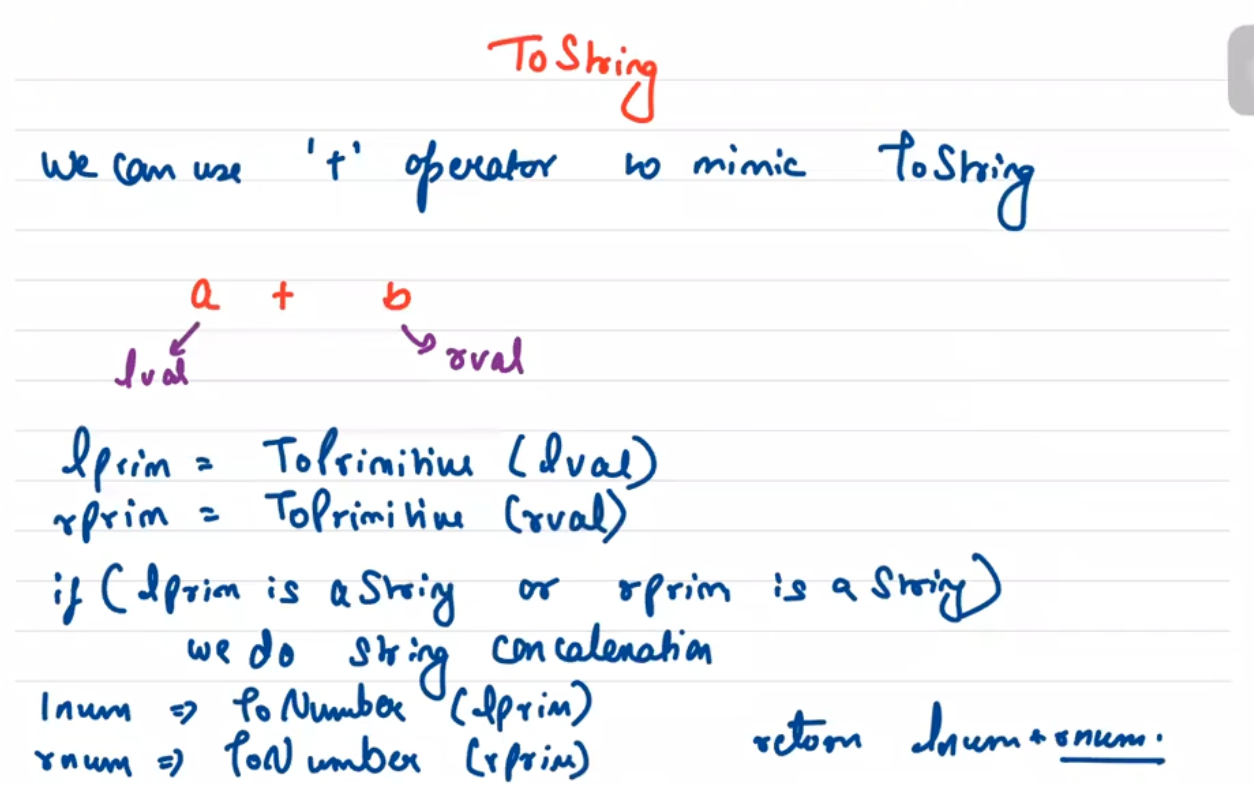 ToString
we can use '+' operator to mimic ToString
a + b
lval rval
lprim = ToPrimitive (lval)
rprim = ToPrimitive (rval)
if (lprim is a String or rprim is a String)
we do string concatenation
lnum => ToNumber (lprim)
rnum => ToNumber (rprim)
return lnum + rnum.